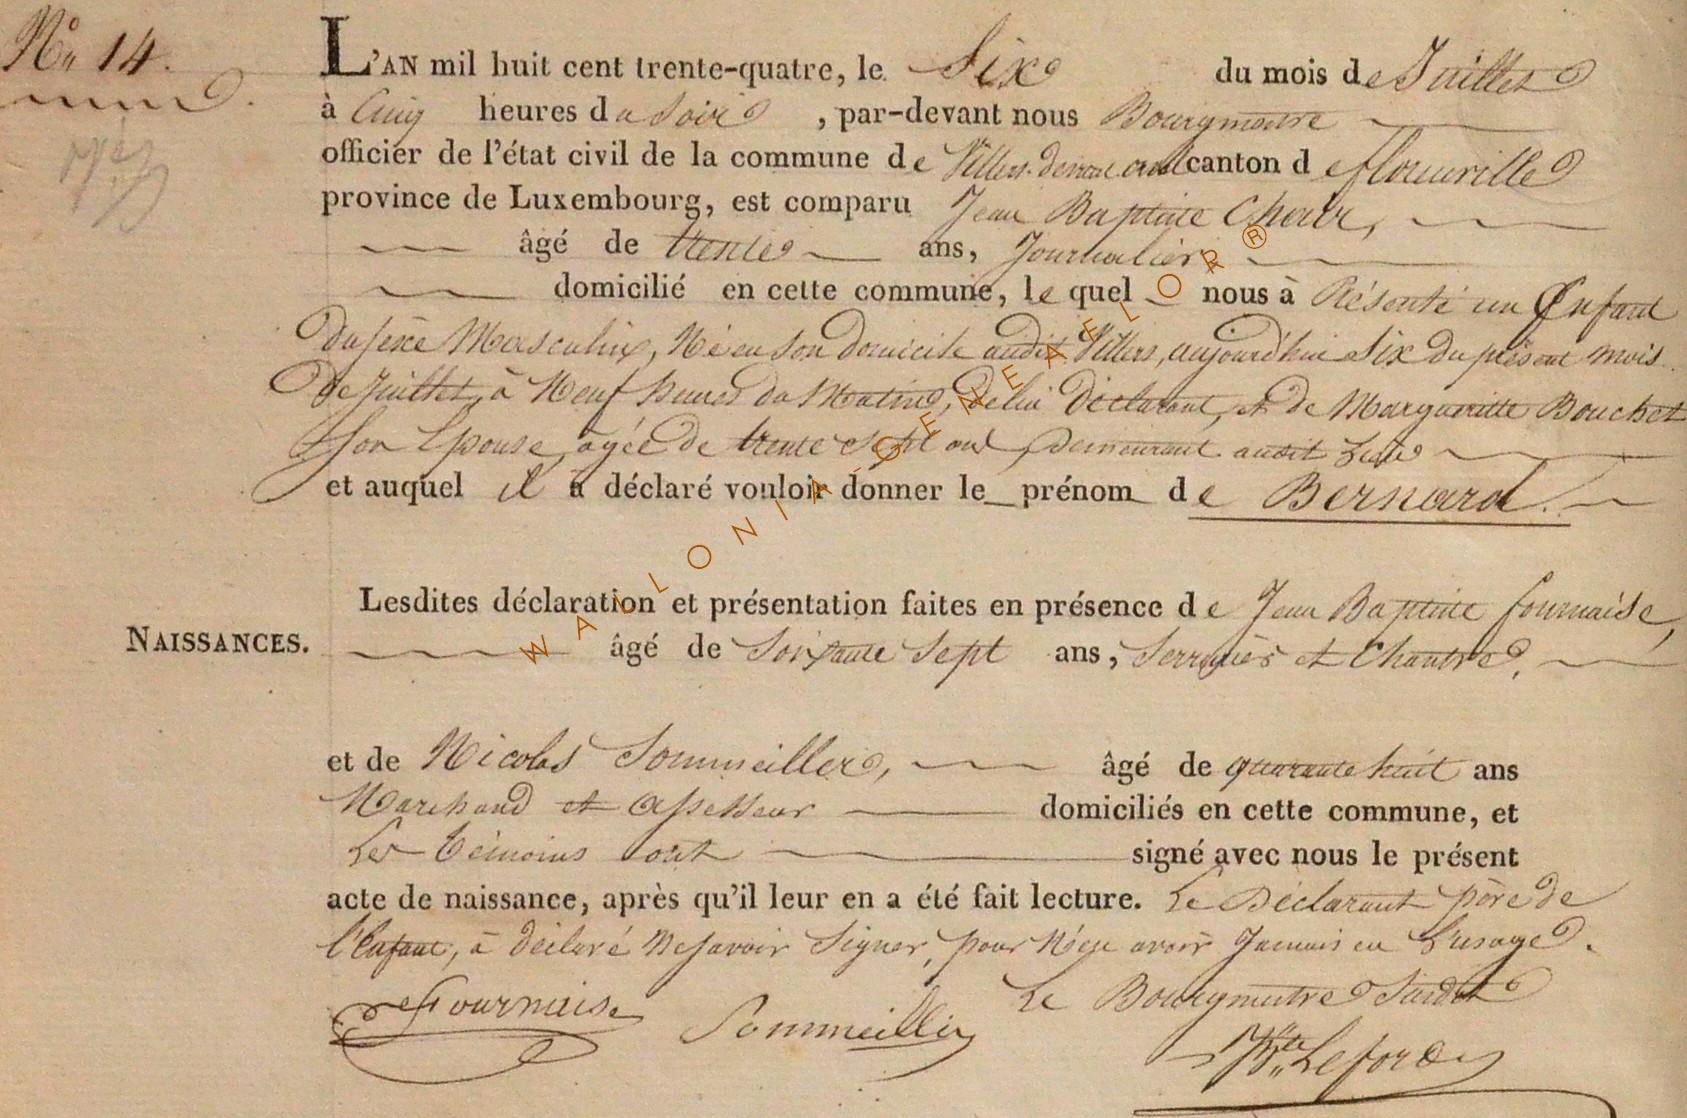 No 14.
L'AN mil huit cent trente-quatre, le Six du mois de Juillet
à Cinq heures du Soir, par-devant nous Bourgmestre
officier de l'état civil de la commune de Villers devant orval canton de florenville
province de Luxembourg, est comparu Jean Baptiste
âgé de trente ans, Journalier
domicilié en cette commune, le quel nous à Présenté un Enfant
du sexe Masculin, Né en son domicile audit Villers, aujourd'hui six du présent mois
de Juillet, à Neuf heures du Matin, de lui Déclarant, et de Margueritte Bouchet
son Epouse, agée de trente sept ans, Demeurant audit Lieu
et auquel il a déclaré vouloir donner le prénom de Bernard.
Lesdites déclaration et présentation faites en présence de Jean Baptiste fournaise,
NAISSANCES.
âgé de Soixante Sept ans, Serrurier et Chantre,
et de Nicolas Sommeiller, âgé de quarante huit ans
Marchand et assesseur domiciliés en cette commune, et
Les témoins ont signé avec nous le présent
acte de naissance, après qu'il leur en a été fait lecture. Le Déclarant père de
l'Enfant, à déclaré Ne savoir Signer, pour N'en avoir Jamais eu L'usage.
Le Bourgmestre Susdit
Fournaise
Sommeiller
Bte Leforde
WALONIA-GENEAFLOR ®